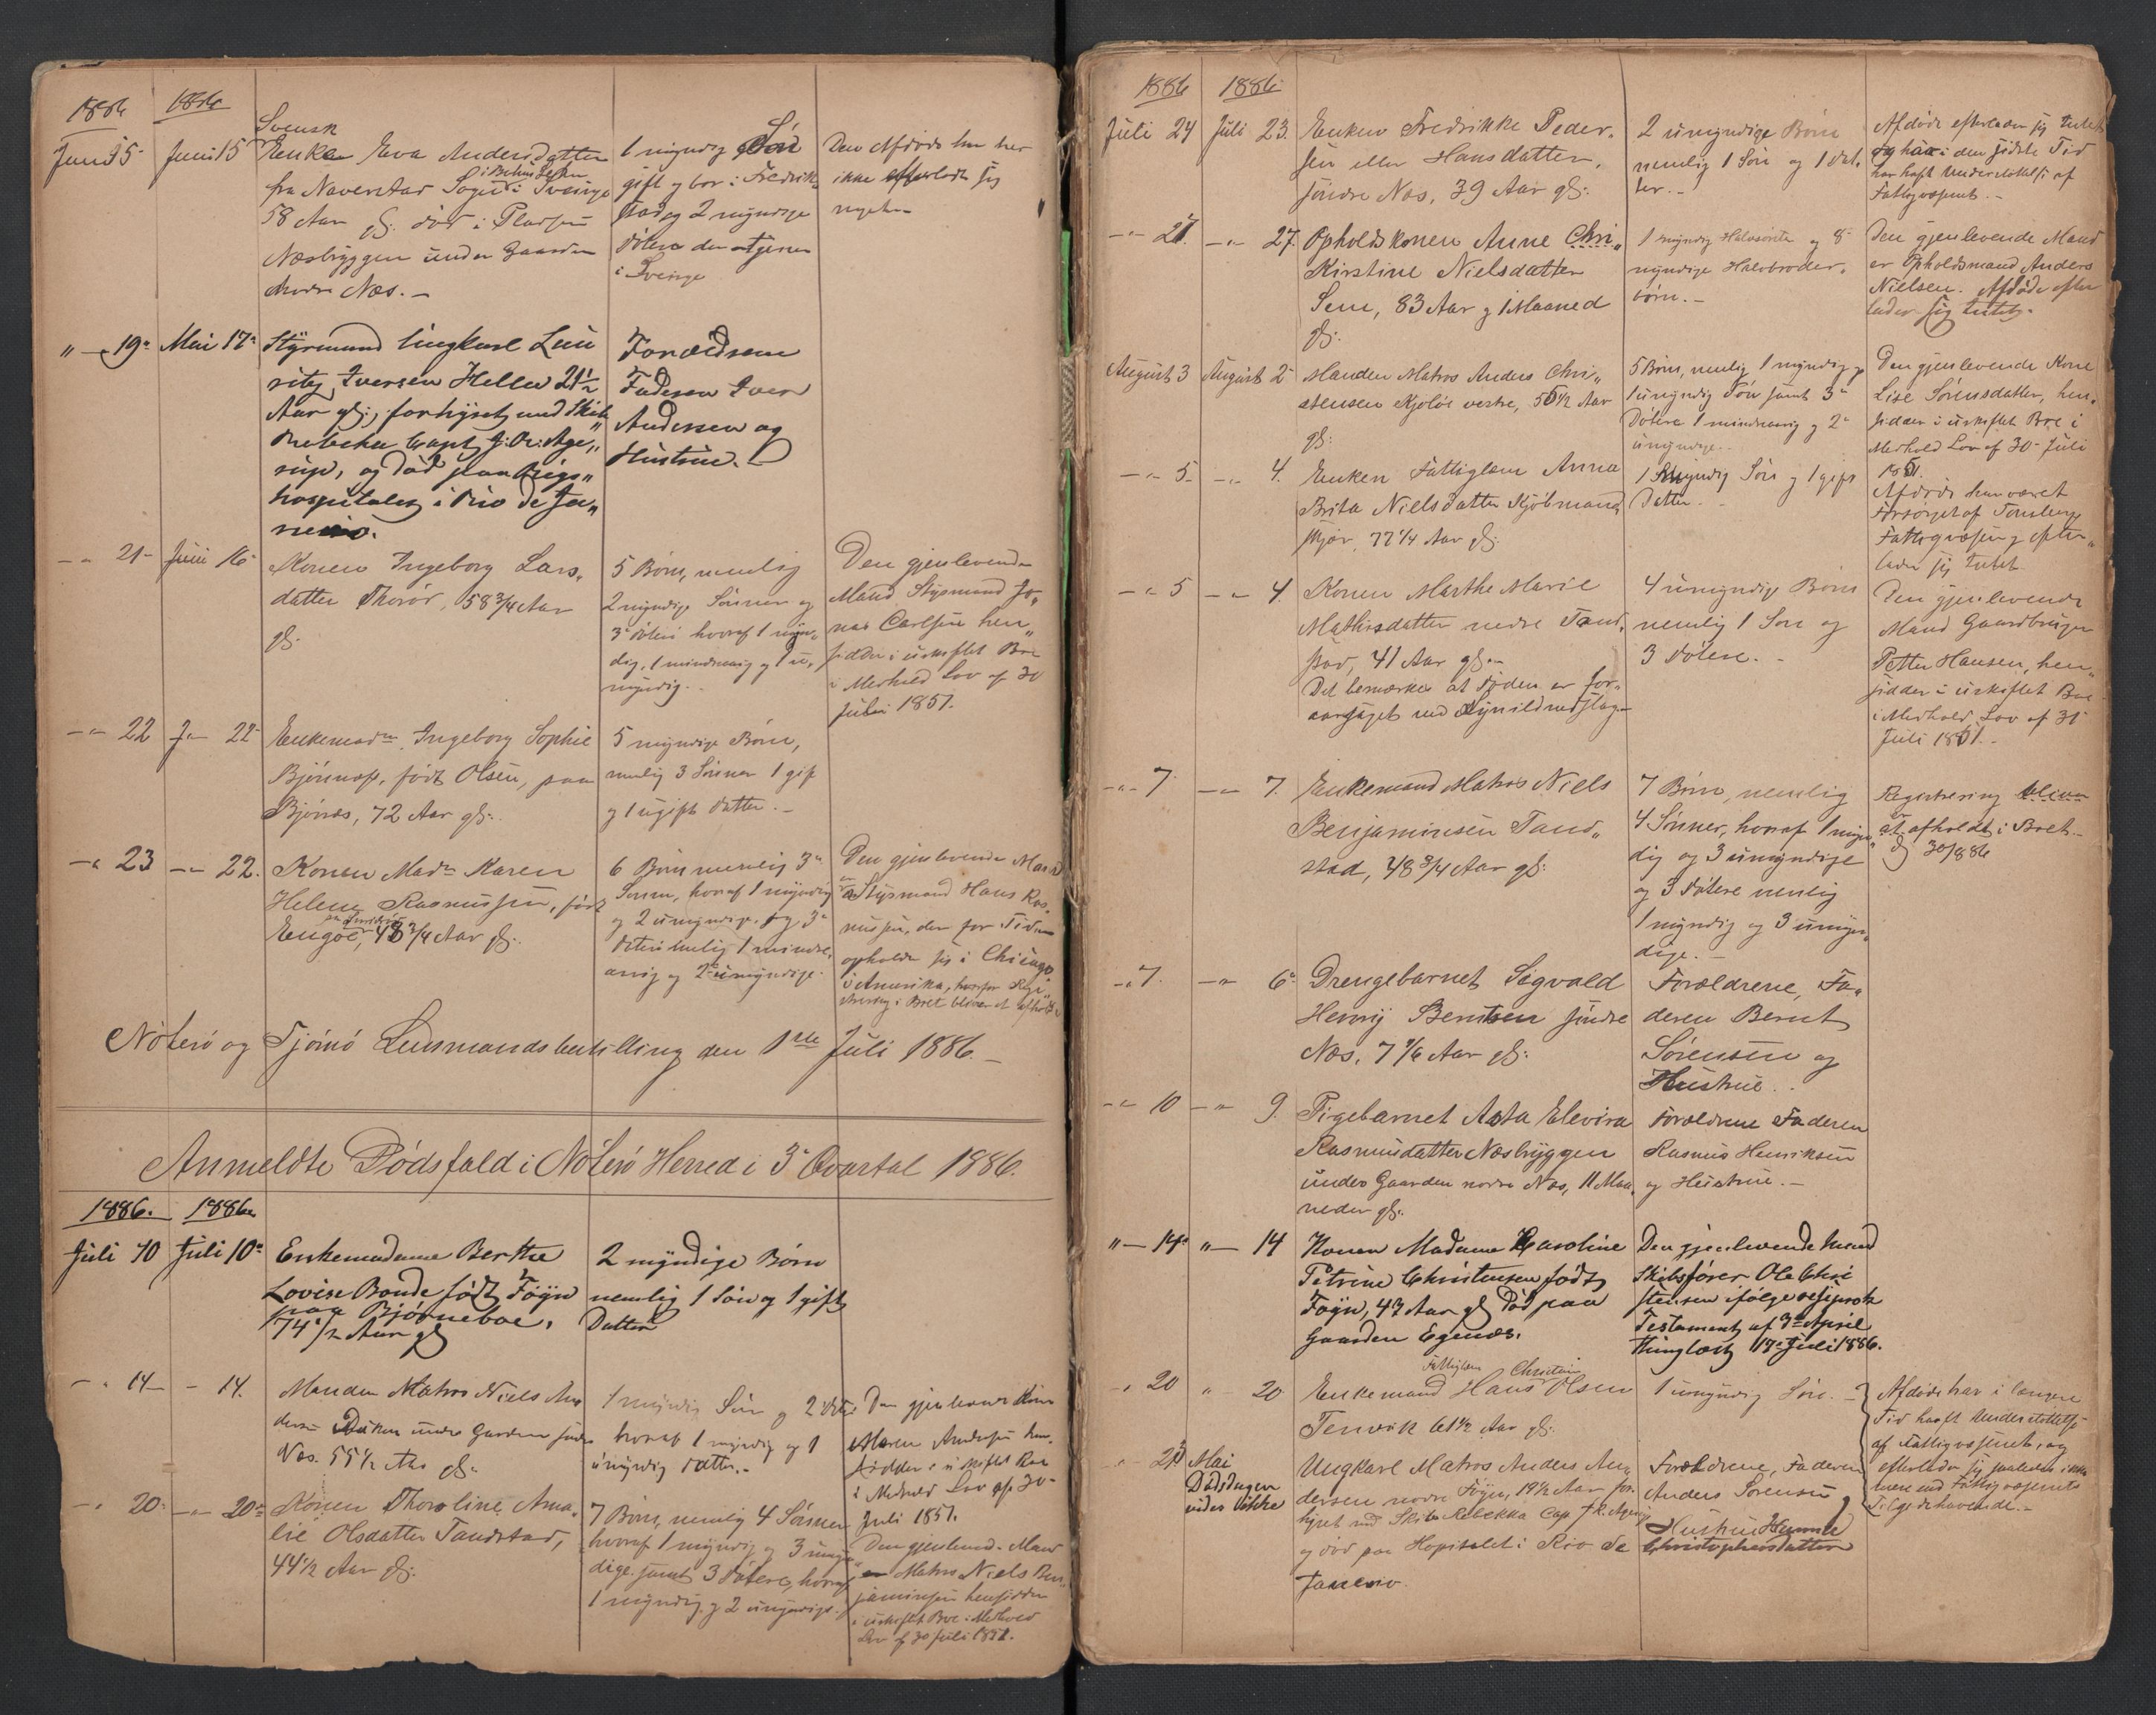 1886 1886
Juni 15 Juni 15 Svensk
Enke Eva Andersdatter
fra Naverstad Sogn i Bohus Lehn i Sverige
58 Aar gl. død i Pladsen
Næsbryggen under Gaarden
Nordre Næs. —
1 myndig Søn
gift og bor i Fredrik-
stad og 2 myndige
Døtere der tjener
i Sverige
Den Afdøde har her
ikke efterladt sig
noget. —
" — 19. Mai 17. Styrmand Ungkarl Lau
ritz Iversen Hella 21 1/2
Aar gl., forhyret med Skib
Rebekka Capt. J. R. Age„
rup, og død paa Rigs„
hospitalet i Rio de Ja„
neiro.
Forældrene
Faderen Iver
Andersen og
Hustrue.
— " 21 — Juni 16 Konen Ingeborg Lars„
datter Thorør, 58 3/4 Aar
gl.
5 Børn, nemlig
2 myndige Sønner og
3 Døtre hvoraf 1 myn„
dig, 1 mindreaarig og 1 u„
myndig. —
Den gjenlevende
Mand Styrmand Jo„
nas Carlsen hen„
sidder i uskiftet Bo
i Medhold Lov af 30
Juli 1851.
— " 22 J — 22 Enkemadm Ingeborg Sophie
Bjønnæss, født Olsen, paa
Bjønnes, 72 Aar gl.
5 myndige Børn,
nemlig 3 Sønner 1 gift
og 1 ugift Datter. —
— " 23 — " 22. Konen Madm Karen
Helene Rasmussen, født
Engøe, 48 3/4 Aar gl.
6 Børn nemlig 3
Sønner, hvoraf 1 myndig
og 2 umyndige, og 3
Døtere nemlig 1 mindre„
aarig og 2 umyndige.
Den gjenlevende Mand
er Styrmand Hans Ras„
mussen, der for Tiden
opholder sig i Chicago
i Amerika, hvorfor Regi„
strering i Boet bliver at afholde
Nøterø og Tjømø Lensmandsbestilling den 1ste Juli 1886. —
Anmeldte Dødsfald i Nøterø Herred i 3 Qvartal 1886.
1886. 1886.
Juli 10 Juli 10 Enkemadame Berthe
Lovise Bonde født Føyn
paa Bjørneboe,
74 1/2 Aar gl
2 myndige Børn
nemlig 1 Søn og 1 gift
Datter
— " 14 — — 14. Manden Matros Niels An
dersen Bakken under Gaarden søndre
Næs. 55 1/2 Aar gl.
1 myndig Søn og 2 Døtre
hvoraf 1 myndig og 1
umyndig Datter. —
Den gjenlevende Kone
Maren Andersen hen„
sidder i uskiftet Boe
i Medhold Lov af 30
Juli 1851.
— " 20 — " 20 Konen Thoroline Ama„
lie Olsdatter Tandstad,
44 1/2 Aar gl.
7 Børn, nemlig 4 Sønner
hvoraf 1 myndig og 3 umyn„
dige samt 3 Døtere, hvoraf
1 myndig og 2 umyndige.
Den gjenlevende Mand
er Matros Niels Ben„
jaminsen hensidder
i uskiftet Boe i Medhold
Lov af 30 Juli 1851.
1886 1886
Juli 24 Juli 23. Enken Fredrikke Peder„
sen eller Hansdatter,
søndre Næs, 39 Aar gl.
2 umyndige Børn
nemlig 1 Søn og 1 Dat„
ter. —
Afdøde efterlader sig Intet
og har i den sidste Tid
har haft Understøttelse af
Fattigvæsenet. —
— " 27. — " 27. Opholdskonen Anne Chri„
Kirstine Nielsdatter
Sem, 83 Aar og 1 Maaned
gl.
1 myndig Halvsøster og 8
myndige Halvbroder„
børn. —
Den gjenlevende Mand
er Opholdsmand Anders
Nielsen. Afdøde efter
lader sig Intet.
August 3 August 2 Manden Matros Anders Chri„
stensen Kjøløe vestre, 56 1/2 Aar
gl.
5 Børn, nemlig 1 myndig og
1 umyndig Søn samt 3
Døtere 1 mindreaarig og 2
umyndige.
Den gjenlevende Kone
Lise Sørensdatter, hen„
sidder i uskiftet Boe i
Medhold Lov af 30 Juli
1851.
— " 5 — " 4. Enken Fattiglem Anna
Brita Nielsdatter Kjøbmand„
skjær, 77 1/4 Aar gl.
1 myndig Søn og 1 gift
Datter. —
Afdøde har været
forsørget af Tønsberg
Fattigvæsen og efter„
lader sig Intet.
— " 5 — " 4. Konen Marthe Marie
Mathisdatter nedre Tand„
stad, 41 Aar gl. —
Det bemærkes at Døden er for„
aarsaget ved Lynildnedslag —
4 umyndige Børn
nemlig 1 Søn og
3 Døtere. —
Den gjenlevende
Mand Gaardbruger
Petter Hansen, hen„
sidder i uskiftet Boe
i Medhold Lov af 30
Juli 1851. —
— " 7 — " 7. Enkemand Matros Niels
Benjaminsen Tand„
stad, 48 3/4 Aar gl.
7 Børn, nemlig
4 Sønner, hvoraf 1 myn„
dig og 3 umyndige
og 3 Døtere nemlig
1 myndig og 3 umyn„
dige. —
Registrering bliver
at afholde i Boet —
30/8 86
— " 7. — " 6 Drengebarnet Sigvald
Henry Berntsen søndre
Næs, 7 1/6 Aar gl.
Forældrene, Fa„
deren Bernt
Sørensen og
Hustrue.
— " 10 — " 9. Pigebarnet Asta Elevira
Rasmusdatter Næsbryggen
under Gaarden nordre Næs, 11 Maa„
neder gl.
Forældrene Faderen
Rasmus Henriksen
og Hustrue. —
" — 14 " — 14 Konen Madame Caroline
Petrine Christensen født
Føyn, 47 Aar gl død paa
Gaarden Egenæs.
Den gjenlevende Mand
Skibsfører Ole Chri
stensen ifølge resiprok
Testament af 3 April
thinglæst 17 Juli 1886.
— " 20 " 20 Enkemand Fattiglem Hans Christian Olsen
Tenvik 61 1/2 Aar gl.
1 umyndig Søn. —
Afdøde har i længere
Tid haft Understøttelse
af Fattigvæsenet, og
efterlader sig saaledes ikke
mere end Fattigvæsenets
Tilgodehavende. —
— " 23 Mai
Dødsdagen
vides ikke
Ungkarl Matros Anders An„
dersen nordre Føyn, 19 1/2 Aar for„
hyret med Skibet Rebekka Cap J. R. Agerup
og død paa Hospitalet i Rio de
Janeiro.
Forældrene, Faderen
Anders Sørensen
Hustrue
Christophersdatter